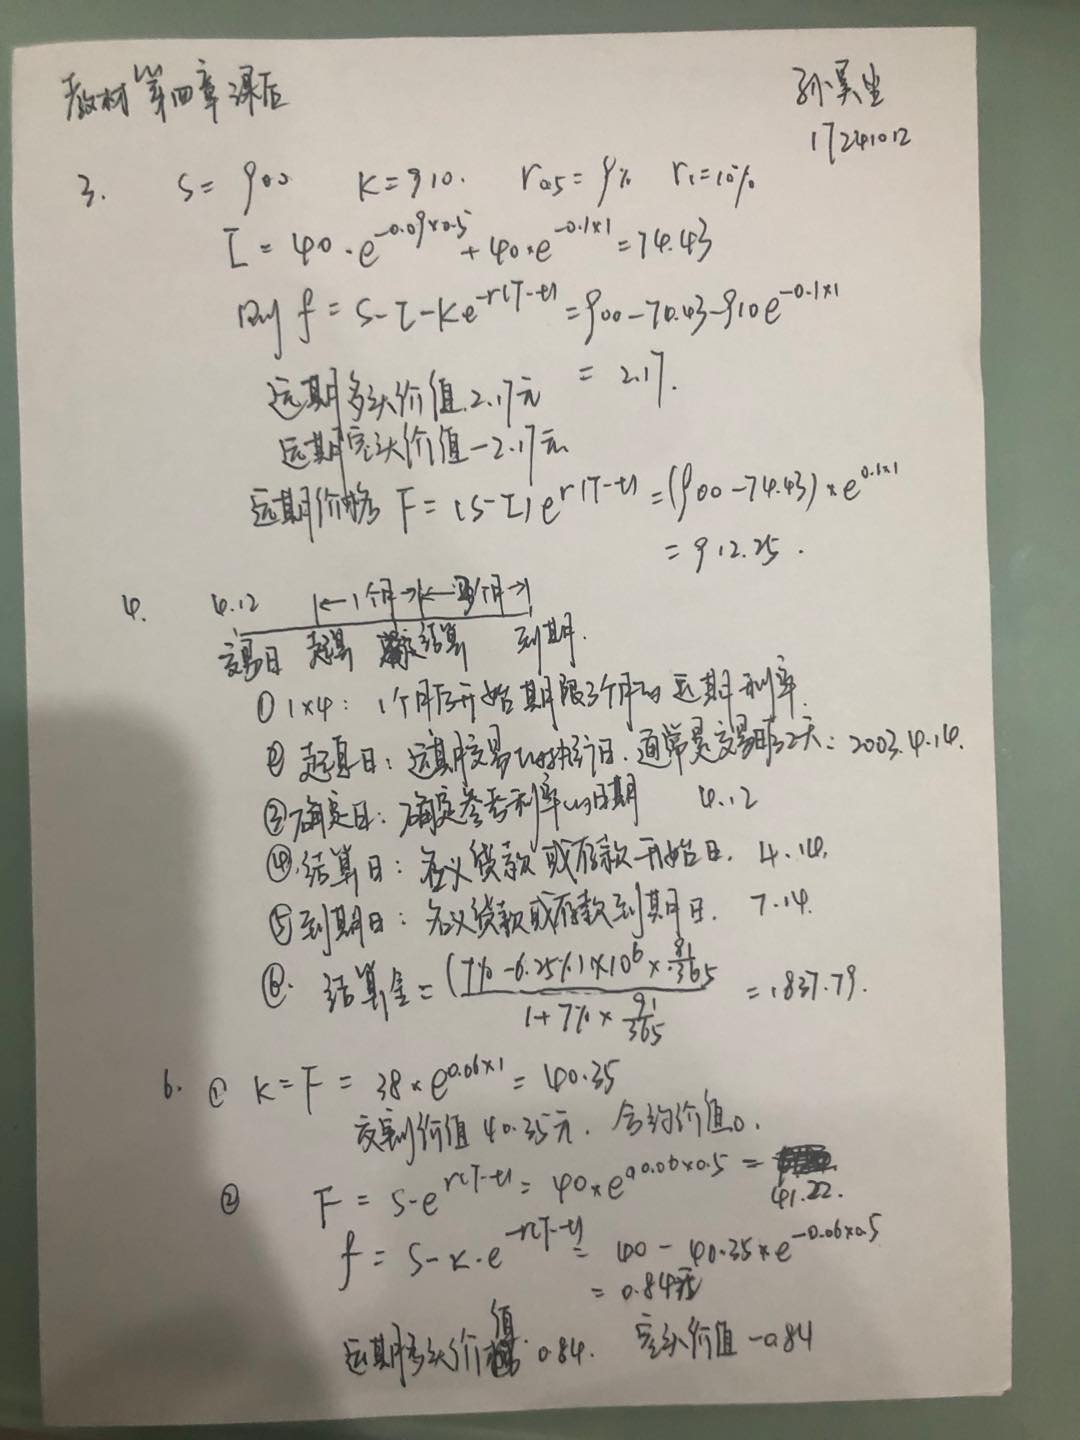 教材第四章课后
孙昊
17241012
3. S=900 K=910. r0.5=9% r1=10%
I=40·e^{-0.09×0.5}+40×e^{-0.1×1}=74.43
则 f=S-I-Ke^{-r(T-t)}=900-74.43-910e^{-0.1×1}
=2.17.
远期多头价值2.17元
远期空头价值-2.17元
远期价格 F=(S-I)e^{r(T-t)}=(900-74.43)×e^{0.1×1}
=912.25.
4. 4.12 |←1个月→|←3个月→|
交易日 起算 结算 到期.
①1×4: 1个月后开始期限3个月的远期利率.
② 起算日: 远期交易的执行日. 通常是交易日后2天: 2003.4.14.
③确定日: 确定参考利率的日期 4.12
④.结算日: 名义贷款或存款开始日. 4.14.
⑤到期日: 名义贷款或存款到期日. 7.14.
⑥. 结算金=\frac{(7%-6.25%)×10^6×\frac{91}{365}}{1+7%×\frac{91}{365}}=1837.79.
6. ① K=F=38×e^{0.06×1}=40.35
交割价值40.35元. 合约价值0.
② F=S·e^{r(T-t)}=40×e^{0.06×0.5}=
41.22.
f=S-K·e^{-r(T-t)}=40-40.35×e^{-0.06×0.5}
=0.84元
远期多头价值0.84. 空头价值-0.84